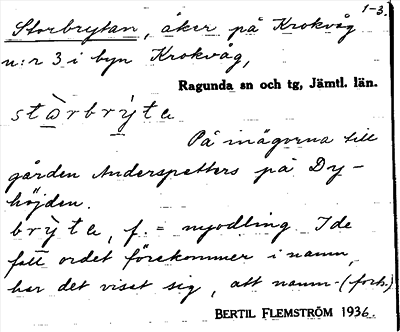 1-3.
Storbrytan, åker på Krokvåg
n:r 3 i byn Krokvåg,
Ragunda sn och tg, Jämtl. län.
stɷ̀rbrỳta
På inägorna till
gården Anderspetters på Dy-
höjden.
brỳta, f. = nyodling I de
fall ordet förekommer i namn,
har det visat sig, att namn- (forts.)
BERTIL FLEMSTRÖM 1936.